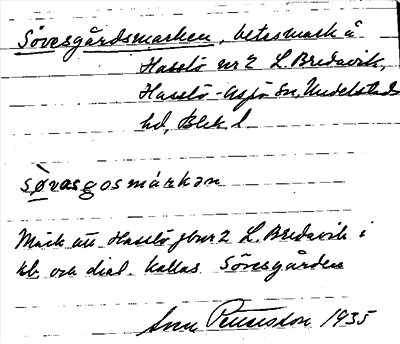 Sövesgårdsmarken, betesmark å
Hasslö nr 2 L. Bredavik,
Hasslö-Aspö sn, Medelstads
hd, Blek. l.
søvasgosmárkan
Mark att Hasslö jbnr 2 L. Bredavik i
kb och dial. kallas Sövesgården
Petersson 1935